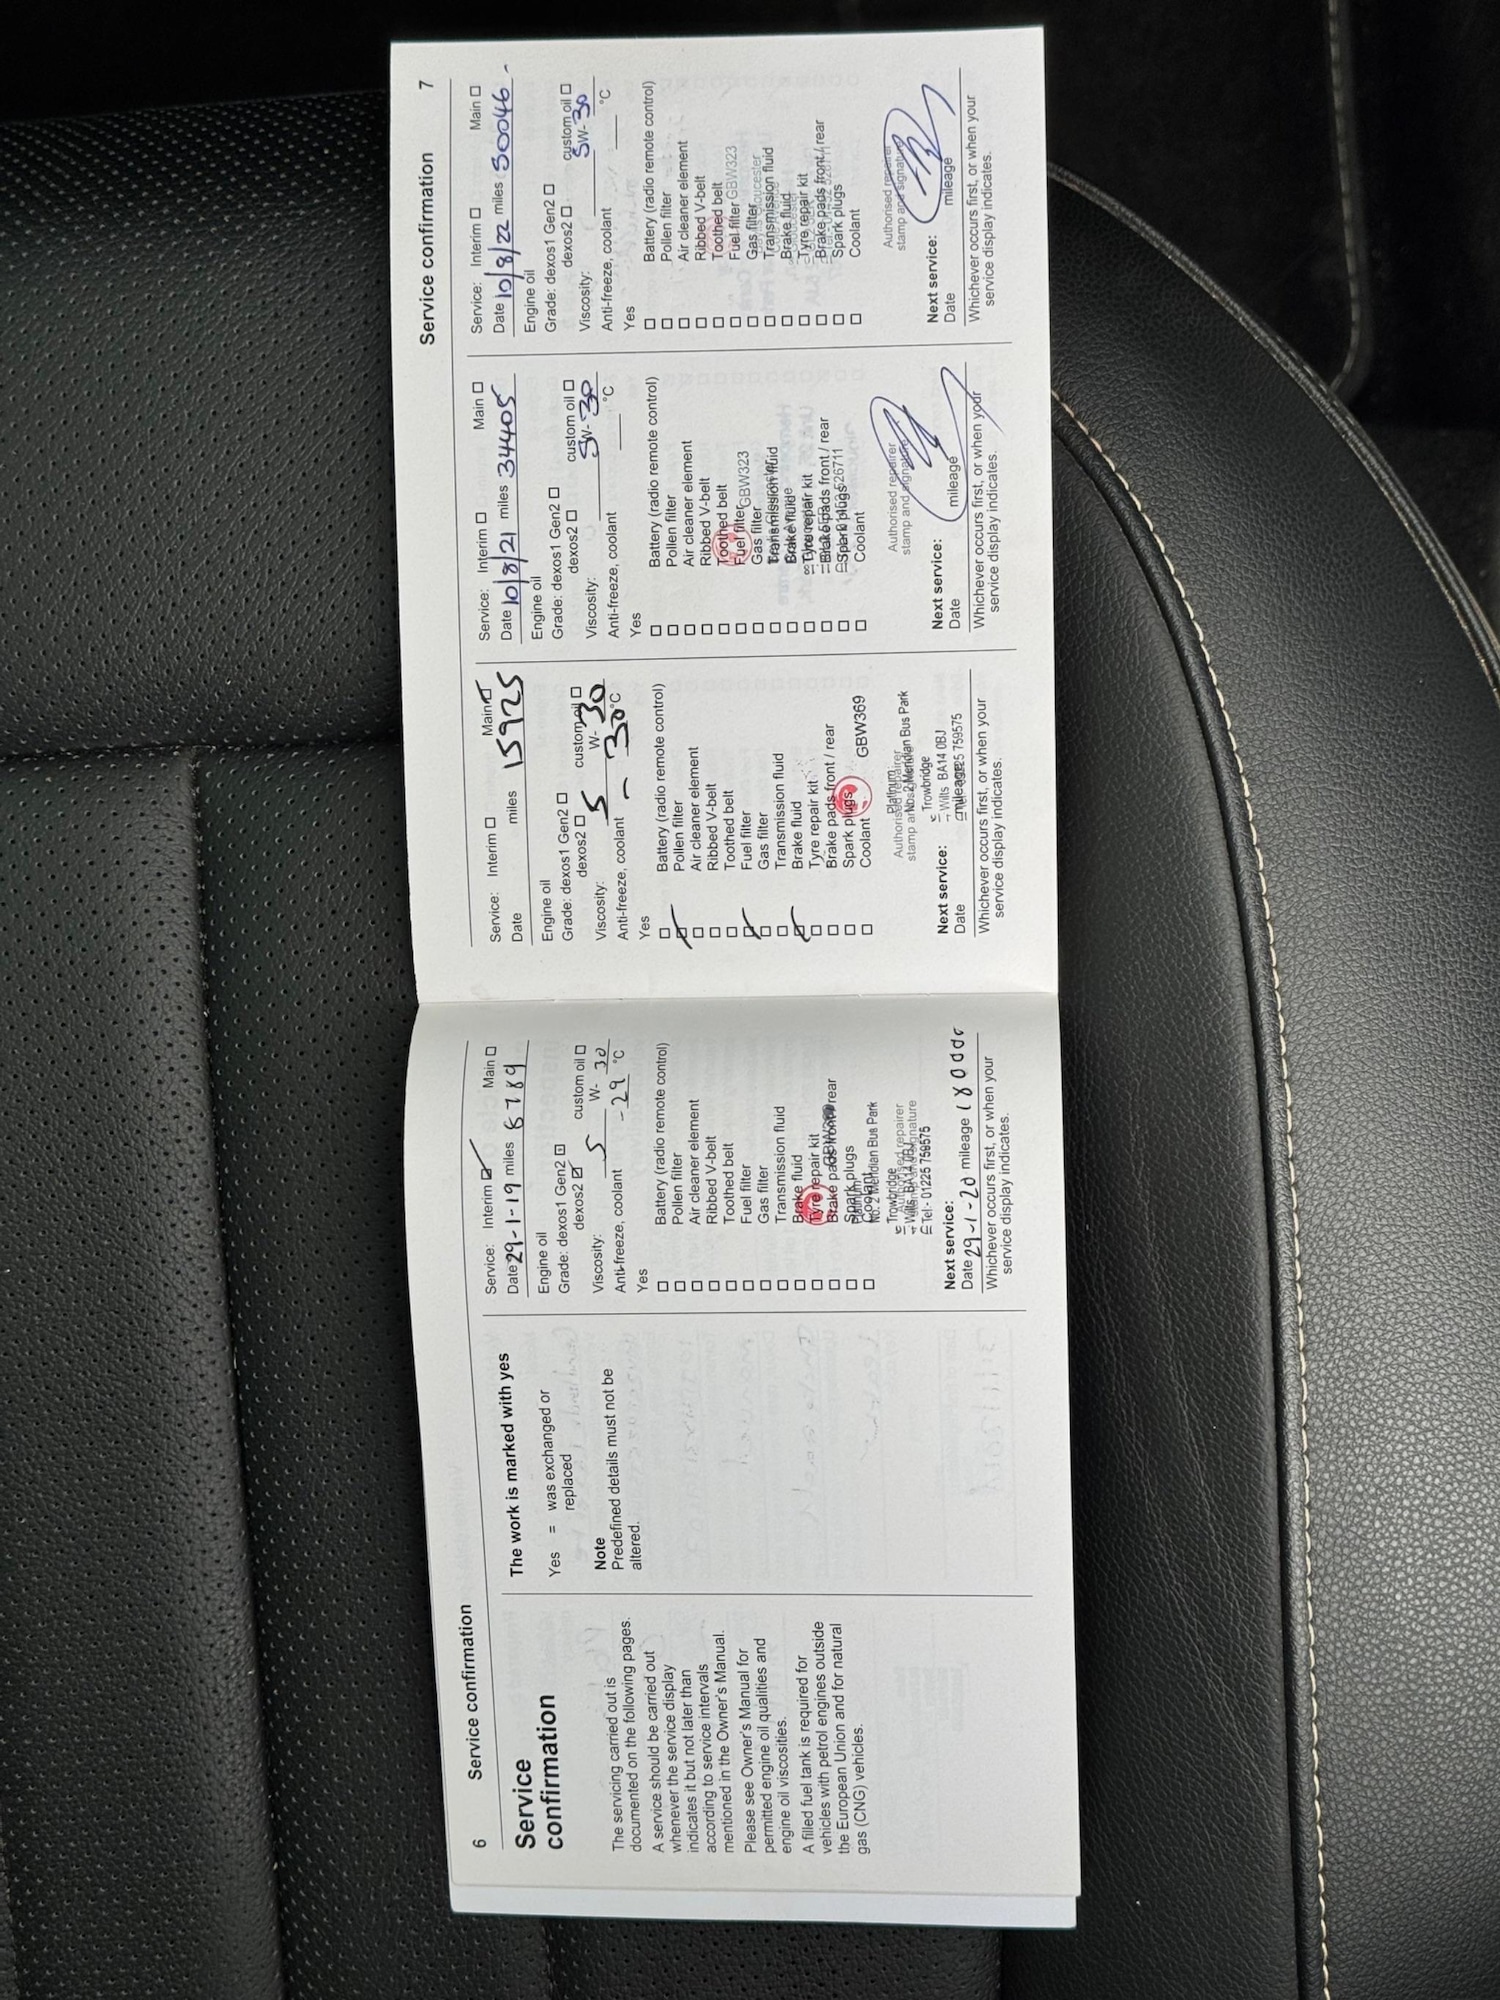 6 Service confirmation
Service
confirmation
The servicing carried out is
documented on the following pages.
A service should be carried out
whenever the service display
indicates it but not later than
according to service intervals
mentioned in the Owner's Manual.
Please see Owner's Manual for
permitted engine oil qualities and
engine oil viscosities.
A filled fuel tank is required for
vehicles with petrol engines outside
the European Union and for natural
gas (CNG) vehicles.
The work is marked with yes
Yes = was exchanged or
replaced
Note
Predefined details must not be
altered.
Service: Interim Main
Date 29-1-19 miles
Engine oil
Grade: dexos1 Gen2
dexos2 custom oil
Viscosity: 5 W- 30
Anti-freeze, coolant -29 °C
Yes
Battery (radio remote control)
Pollen filter
Air cleaner element
Ribbed V-belt
Toothed belt
Fuel filter
Gas filter
Transmission fluid
Brake fluid
Tyre repair kit
Brake pads front / rear
Spark plugs
Coolant
No. 2 Meridian Bus Park
Trowbridge
Authorised repairer
stamp and signature
Wilts BA14 0BJ
Tel:- 01225 759575
Next service:
Date 29-1-20 mileage
Whichever occurs first, or when your
service display indicates.
Service confirmation 7
Service: Interim Main
Date miles 15925
Engine oil
Grade: dexos1 Gen2
dexos2 custom oil
Viscosity: 5 W- 30
Anti-freeze, coolant - 30 °C
Yes
Battery (radio remote control)
Pollen filter
Air cleaner element
Ribbed V-belt
Toothed belt
Fuel filter
Gas filter
Transmission fluid
Brake fluid
Tyre repair kit
Brake pads front / rear
Spark plugs
Coolant GBW369
Platinum
Authorised repairer
stamp and signature
No. 2 Meridian Bus Park
Trowbridge
Wilts BA14 0BJ
01225 759575
Next service:
Date mileage
Whichever occurs first, or when your
service display indicates.
Service: Interim Main
Date 10/8/21 miles 34405
Engine oil
Grade: dexos1 Gen2
dexos2 custom oil
Viscosity: 5W-30
Anti-freeze, coolant °C
Yes
Battery (radio remote control)
Pollen filter
Air cleaner element
Ribbed V-belt
Toothed belt
Fuel filter GBW323
Gas filter
Transmission fluid
Brake fluid
Tyre repair kit
Brake pads front / rear
Spark plugs 01452 526711
Coolant
Authorised repairer
stamp and signature
Next service:
Date mileage
Whichever occurs first, or when your
service display indicates.
Service: Interim Main
Date 10/8/22 miles 50046
Engine oil
Grade: dexos1 Gen2
dexos2 custom oil
Viscosity: 5W-30
Anti-freeze, coolant °C
Yes
Battery (radio remote control)
Pollen filter
Air cleaner element
Ribbed V-belt
Toothed belt
Fuel filter GBW323
Gas filter Gloucester
Transmission fluid
Brake fluid
Tyre repair kit
Brake pads front / rear
Spark plugs
Coolant
Authorised repairer
stamp and signature
Next service:
Date mileage
Whichever occurs first, or when your
service display indicates.